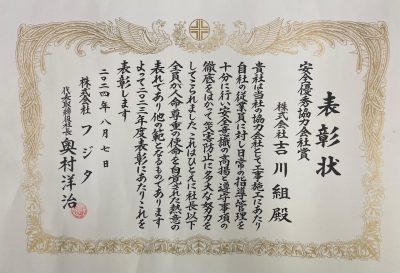 表彰状
安全優秀協力会社賞
株式会社 吉川組 殿
貴社は当社の協力会社として工事施工にあたり
自社の従業員に対し日常の指導管理を
十分に行い安全意識の高揚と遵守事項の
徹底をはかって災害防止に多大な努力を
してこられましたこれはひとえに社長以下
全員が人命尊重の使命を自覚された熱意の
表れであり他の範となるものであります
よって二〇二三年度表彰にあたりこれを
表彰します
二〇二四年八月七日
株式会社フジタ
代表取締役社長 奥村洋治